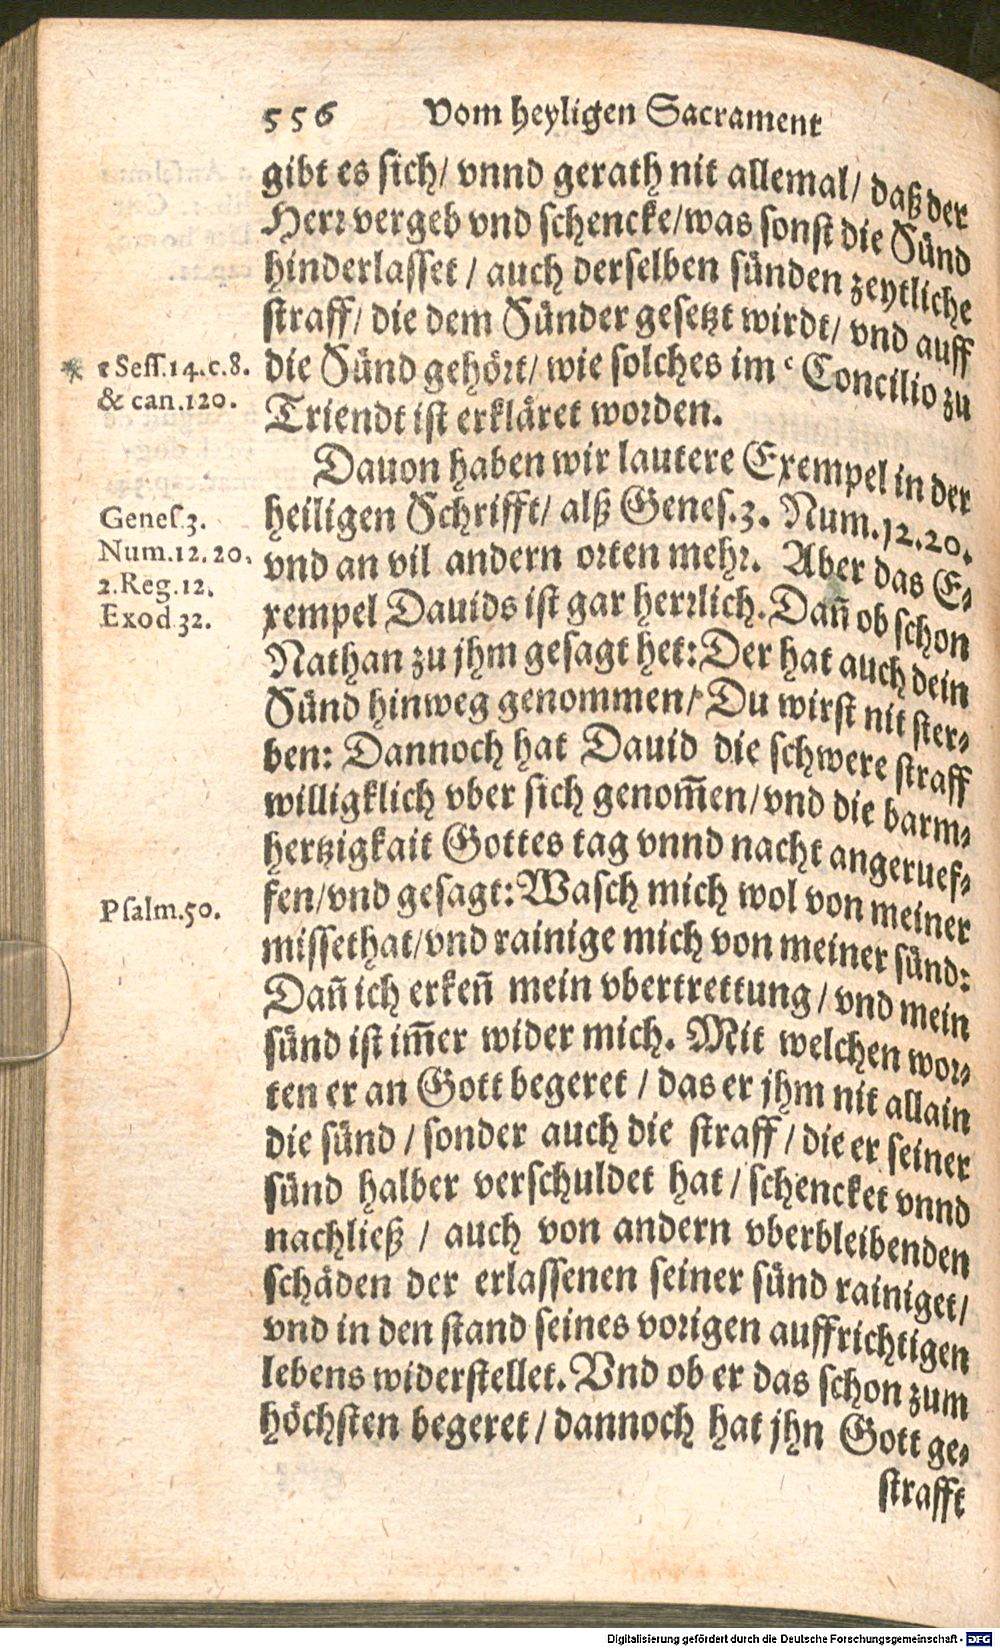 556 Vom heyligen Sacrament
gibt es sich/ vnnd gerath nit allemal/ daß der
Herr vergeb vnd schencke/was sonst die Sünd
hinderlasset / auch derselben sünden zeytliche
straff/ die dem Sünder gesetzt wirdt/ vnd auff
die Sünd gehört/ wie solches im c Concilio zu
Triendt ist erkläret worden.
c Sess.14.c.8.
& can.120.
Dauon haben wir lautere Exempel in der
heiligen Schrifft/ alß Genes.3. Num.12.20.
vnd an vil andern orten mehr. Aber das E-
xempel Dauids ist gar herrlich. Dañ ob schon
Nathan zu jhm gesagt het: Der hat auch dein
Sünd hinweg genommen/ Du wirst nit ster-
ben: Dannoch hat Dauid die schwere straff
willigklich vber sich genom̃en/vnd die barm-
hertzigkait Gottes tag vnnd nacht angeruef-
fen/vnd gesagt: Wasch mich wol von meiner
missethat/vnd rainige mich von meiner sünd:
Dañ ich erkeñ mein vbertrettung/ vnd mein
sünd ist im̃er wider mich. Mit welchen wor-
ten er an Gott begeret / das er jhm nit allain
die sünd / sonder auch die straff / die er seiner
sünd halber verschuldet hat / schencket vnnd
nachließ / auch von andern vberbleibenden
schäden der erlassenen seiner sünd rainiget/
vnd in den stand seines vorigen auffrichtigen
lebens widerstellet. Vnd ob er das schon zum
höchsten begeret / dannoch hat jhn Gott ge-
strafft
Genes.3.
Num.12.20.
2.Reg.12.
Exod.32.
Psalm.50.
Digitalisierung gefördert durch die Deutsche Forschungsgemeinschaft - DFG